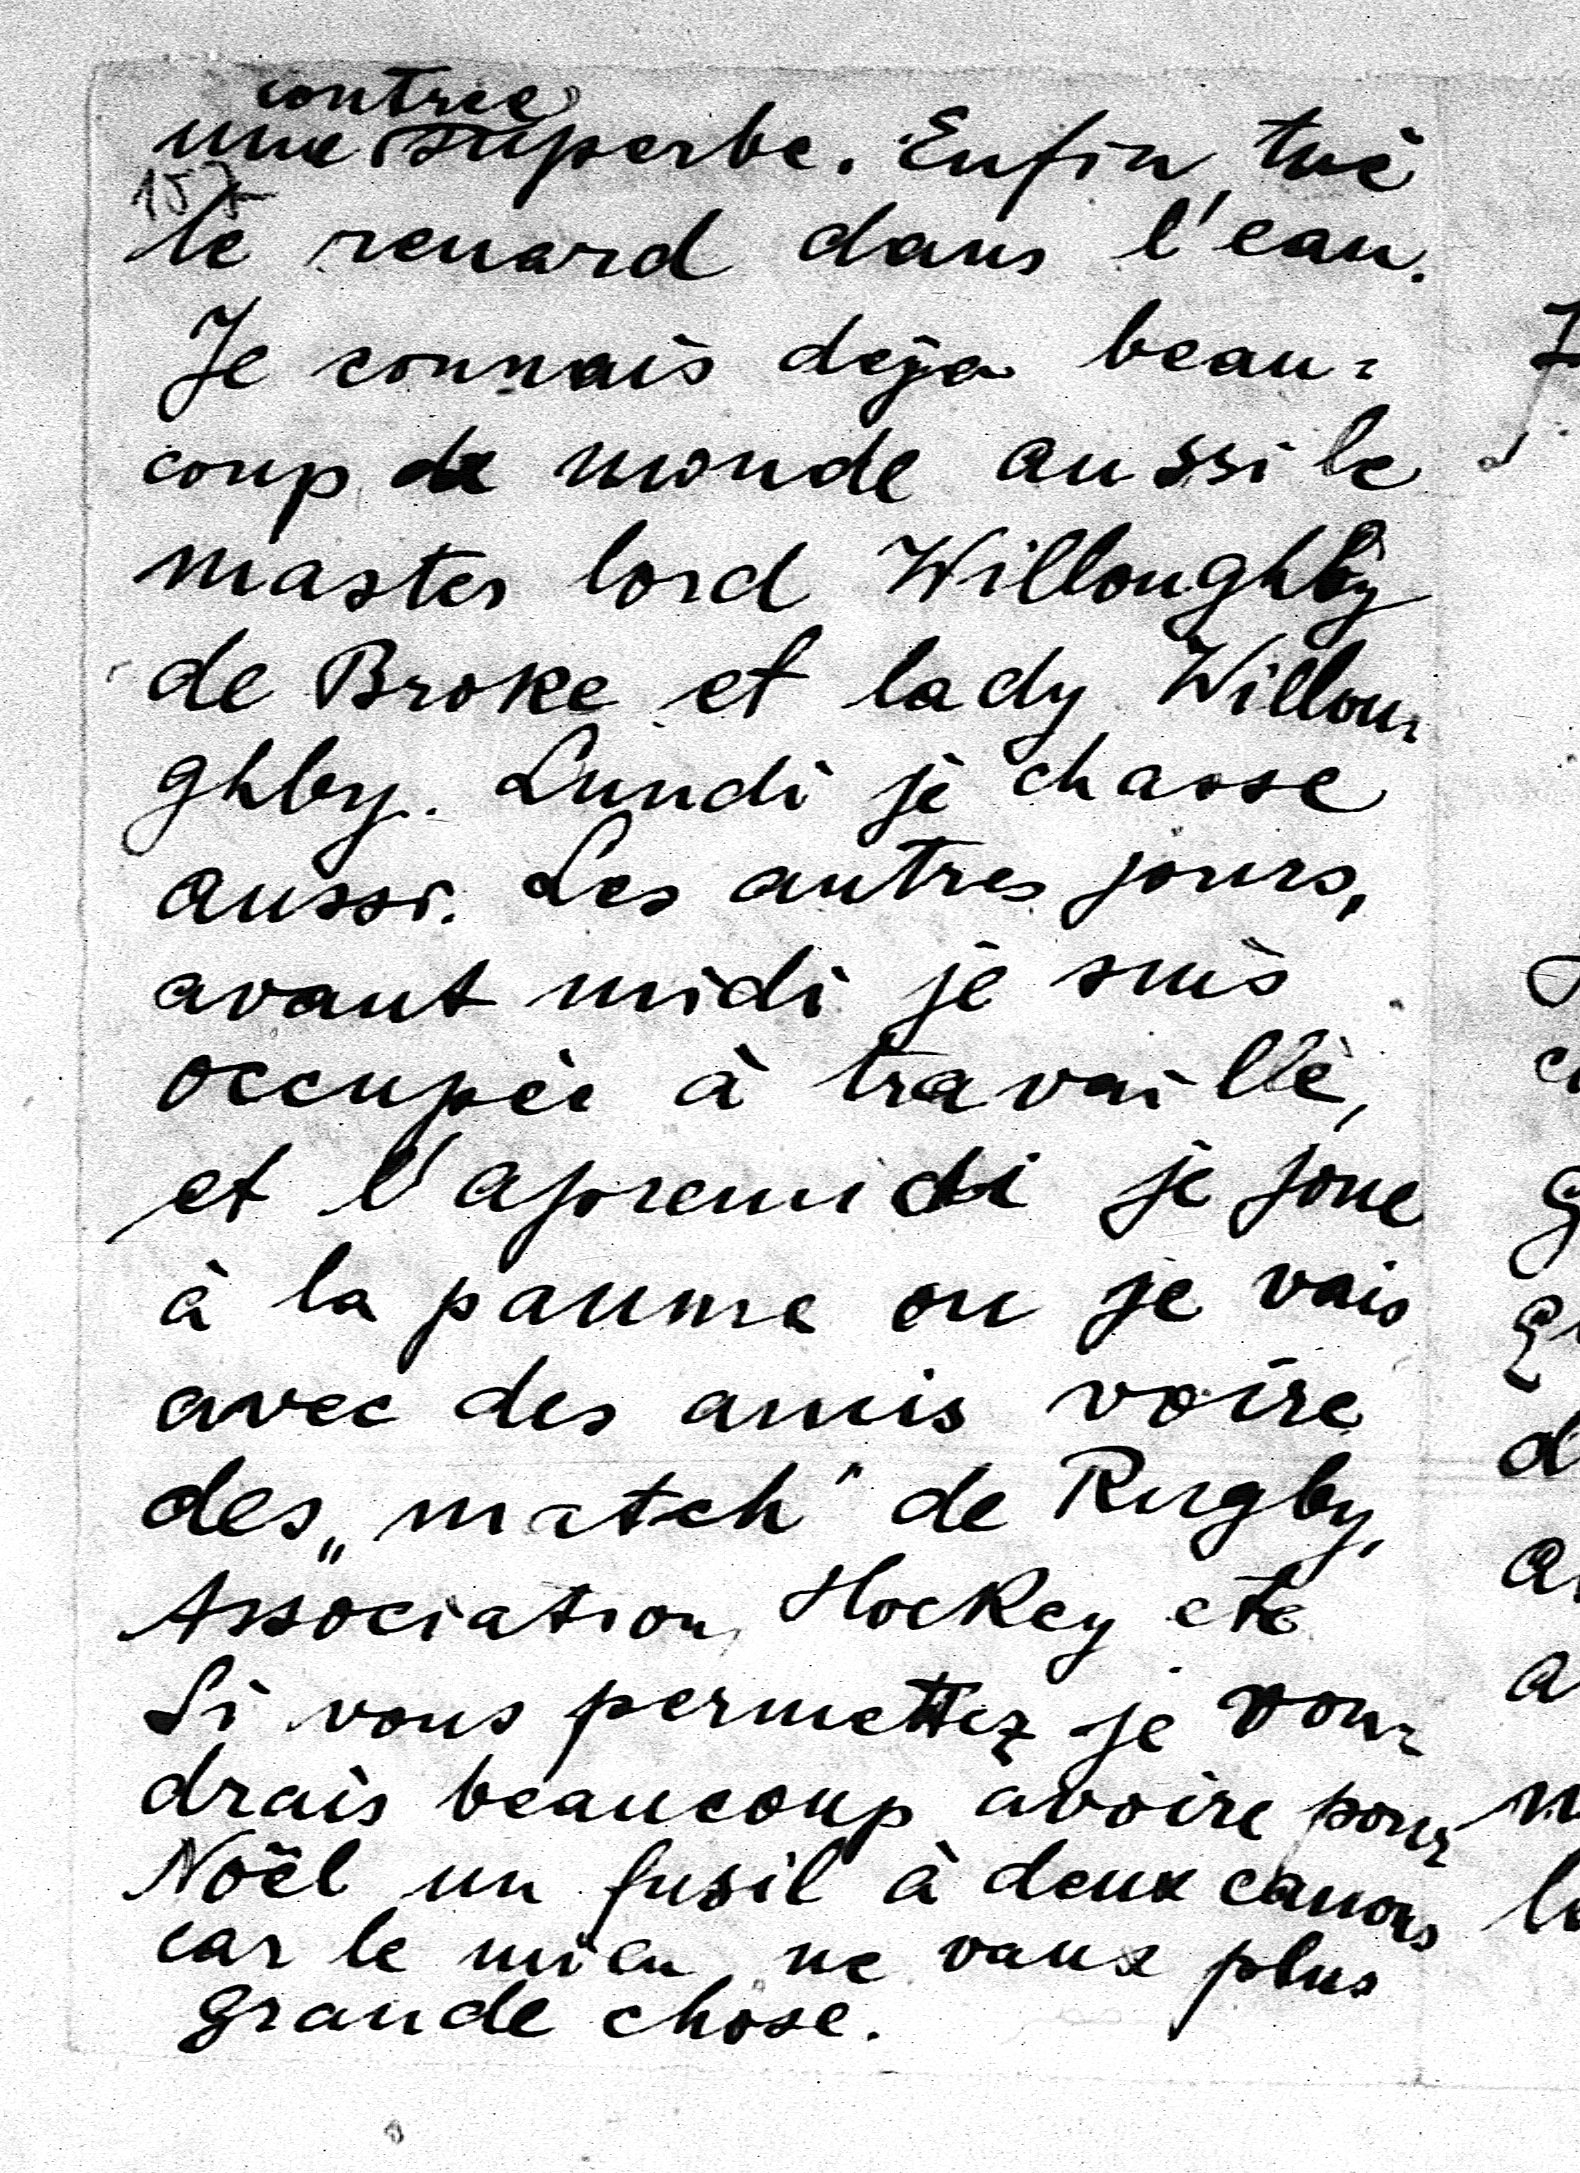 contrée
une superbe. Enfin, tué
157
le renard dans l'eau.
Je connais deja beau=
coup de monde aussi le
master lord Willoughby
de Broke et lady Willou=
ghby. Lundi je chasse
aussi. Les autres jours,
avant midi je suis
occupée à travaillé,
et l'apremidi je joue
à la paume ou je vais
avec des amis voire
des „match" de Rugby,
Association, Hockey etc
Si vous permettez je vou=
drais beaucoup avoire pour
Noël un fusil à deux canons
car le mien ne vaux plus
grande chose.